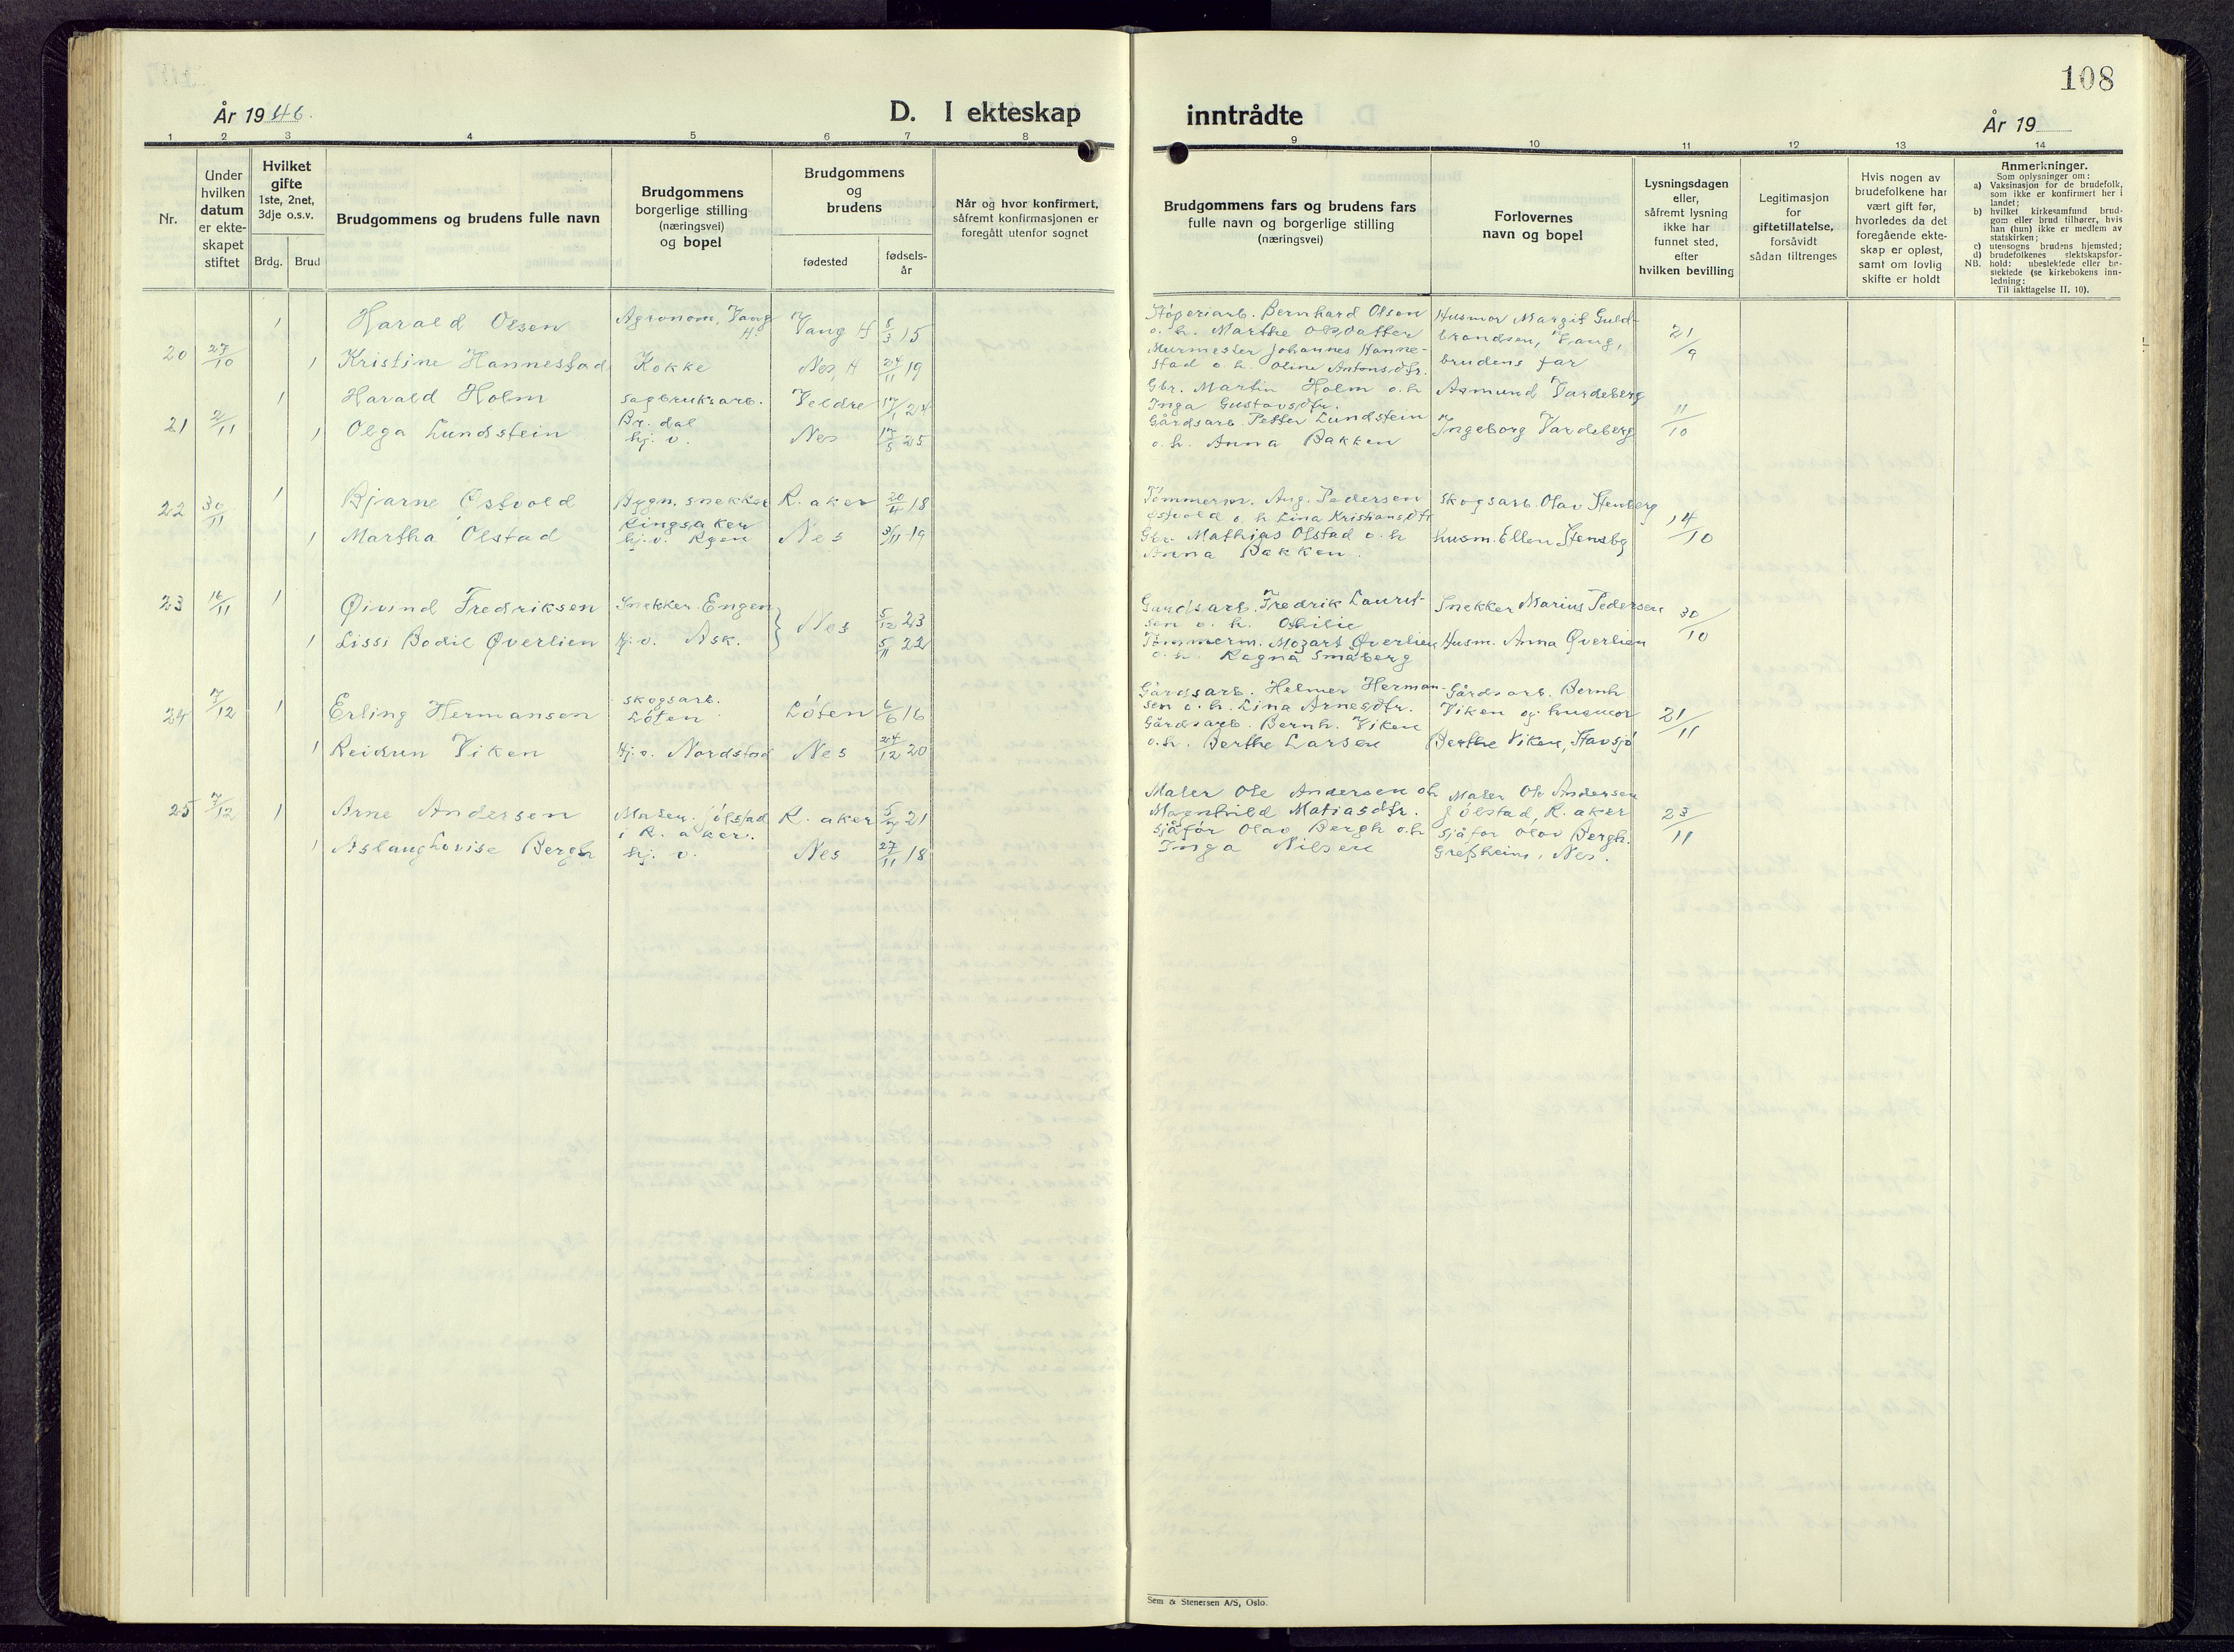 108
År 1946.
D. I ekteskap inntrådte
År 19
1 2 3 4 5 6 7 8 9 10 11 12 13 14
Nr.
Under hvilken datum er ekte-skapet stiftet
Hvilket gifte 1ste, 2net, 3dje o.s.v.
Brdg. Brud
Brudgommens og brudens fulle navn
Brudgommens borgerlige stilling (næringsvei) og bopel
Brudgommens og brudens
fødested
fødsels-år
Når og hvor konfirmert, såfremt konfirmasjonen er foregått utenfor sognet
Brudgommens fars og brudens fars fulle navn og borgerlige stilling (næringsvei)
Forlovernes navn og bopel
Lysningsdagen eller, såfremt lysning ikke har funnet sted, efter hvilken bevilling
Legitimasjon for giftetillatelse, forsåvidt sådan tiltrenges
Hvis nogen av brudefolkene har vært gift før, hvorledes da det foregående ekte-skap er opløst, samt om lovlig skifte er holdt
Anmerkninger.
Som oplysninger om:
a) Vaksinasjon for de brudefolk, som ikke er konfirmert her i landet;
b) hvilket kirkesamfund brud-gom eller brud tilhører, hvis han (hun) ikke er medlem av statskirken;
c) utensogns brudens hjemsted;
d) brudefolkenes slektskapsfor-hold: ubeslektede eller be-slektede (se kirkebokens inn-ledning:
NB. Til iakttagelse II, 10).
20 27/10 1 Harald Olsen Agronom, Vang H. Vang H 5/3 15 Støperiarb. Bernhard Olsen o. h. Marthe Olsdatter Husmor Margit Guld-brandsen, Vang, 21/9
1 Kristine Hannestad Kokke Nes, H 24/11 19 Murmester Johannes Hanne-stad o. h. Oline Antonsdtr. brudens far
21 2/11 1 Harald Holm sagbruksarb. Br. dal Veldre 17/1 24 Gbr. Martin Holm o. h Inga Gustavsdtr. Asmund Vardeberg 11/10
1 Olga Lundstein hj. v. Nes 17/5 25 Gårdsarb. Petter Lundstein o. h. Anna Bakken Ingeborg Vardeberg
22 30/11 1 Bjarne Østvold Bygn. snekker Ringsaker R. aker 20/4 18 Tømmerm. Aug. Pedersen Østvold o. h Lina Kristiansdtr Skogsarb. Olav Stenberg 14/10
1 Martha Olstad hj. v. Nes 3/11 19 Gbr. Mathias Olstad o. h Anna Bakken. Husm. Ellen Stensbg
23 16/11 1 Øivind Fredriksen Snekker Engen Nes 5/12 23 Gårdsarb. Fredrik Laurit-sen o. h. Othilie Snekker Marius Pedersen 30/10
1 Lissi Bodil Øverlien Hj. v. Ask. 5/11 22 Tømmerm. Mozart Øverlien o. h. Ragna Småberg Husm. Anna Øverlien
24 7/12 1 Erling Hermansen skogsarb. Løten Løten 6/6 16 Gårdsarb. Helmer Herman-sen o. h. Lina Arnesdtr. Gårdsarb. Bernh Viken og husmor 21/11
1 Reidun Viken Hj. v. Nordstad Nes 24/12 20 Gårdsarb. Bernh. Viken o. h. Berthe Larsen Berthe Viken, Stavsjø
25 7/12 1 Arne Andersen Maler. Jølstad i R. aker. R. aker 21 Maler Ole Andersen o h Magnhild Matiasdtr. Maler Ole Andersen Jølstad, R. aker 23/11
1 Aslaug Lovise Bergh hj. v. Nes 27/11 18 Sjåfør Olav Bergh o. h Inga Nilsen Sjåfør Olav Bergh. Grefsheim, Nes.
Sem & Stenersen A/S, Oslo.